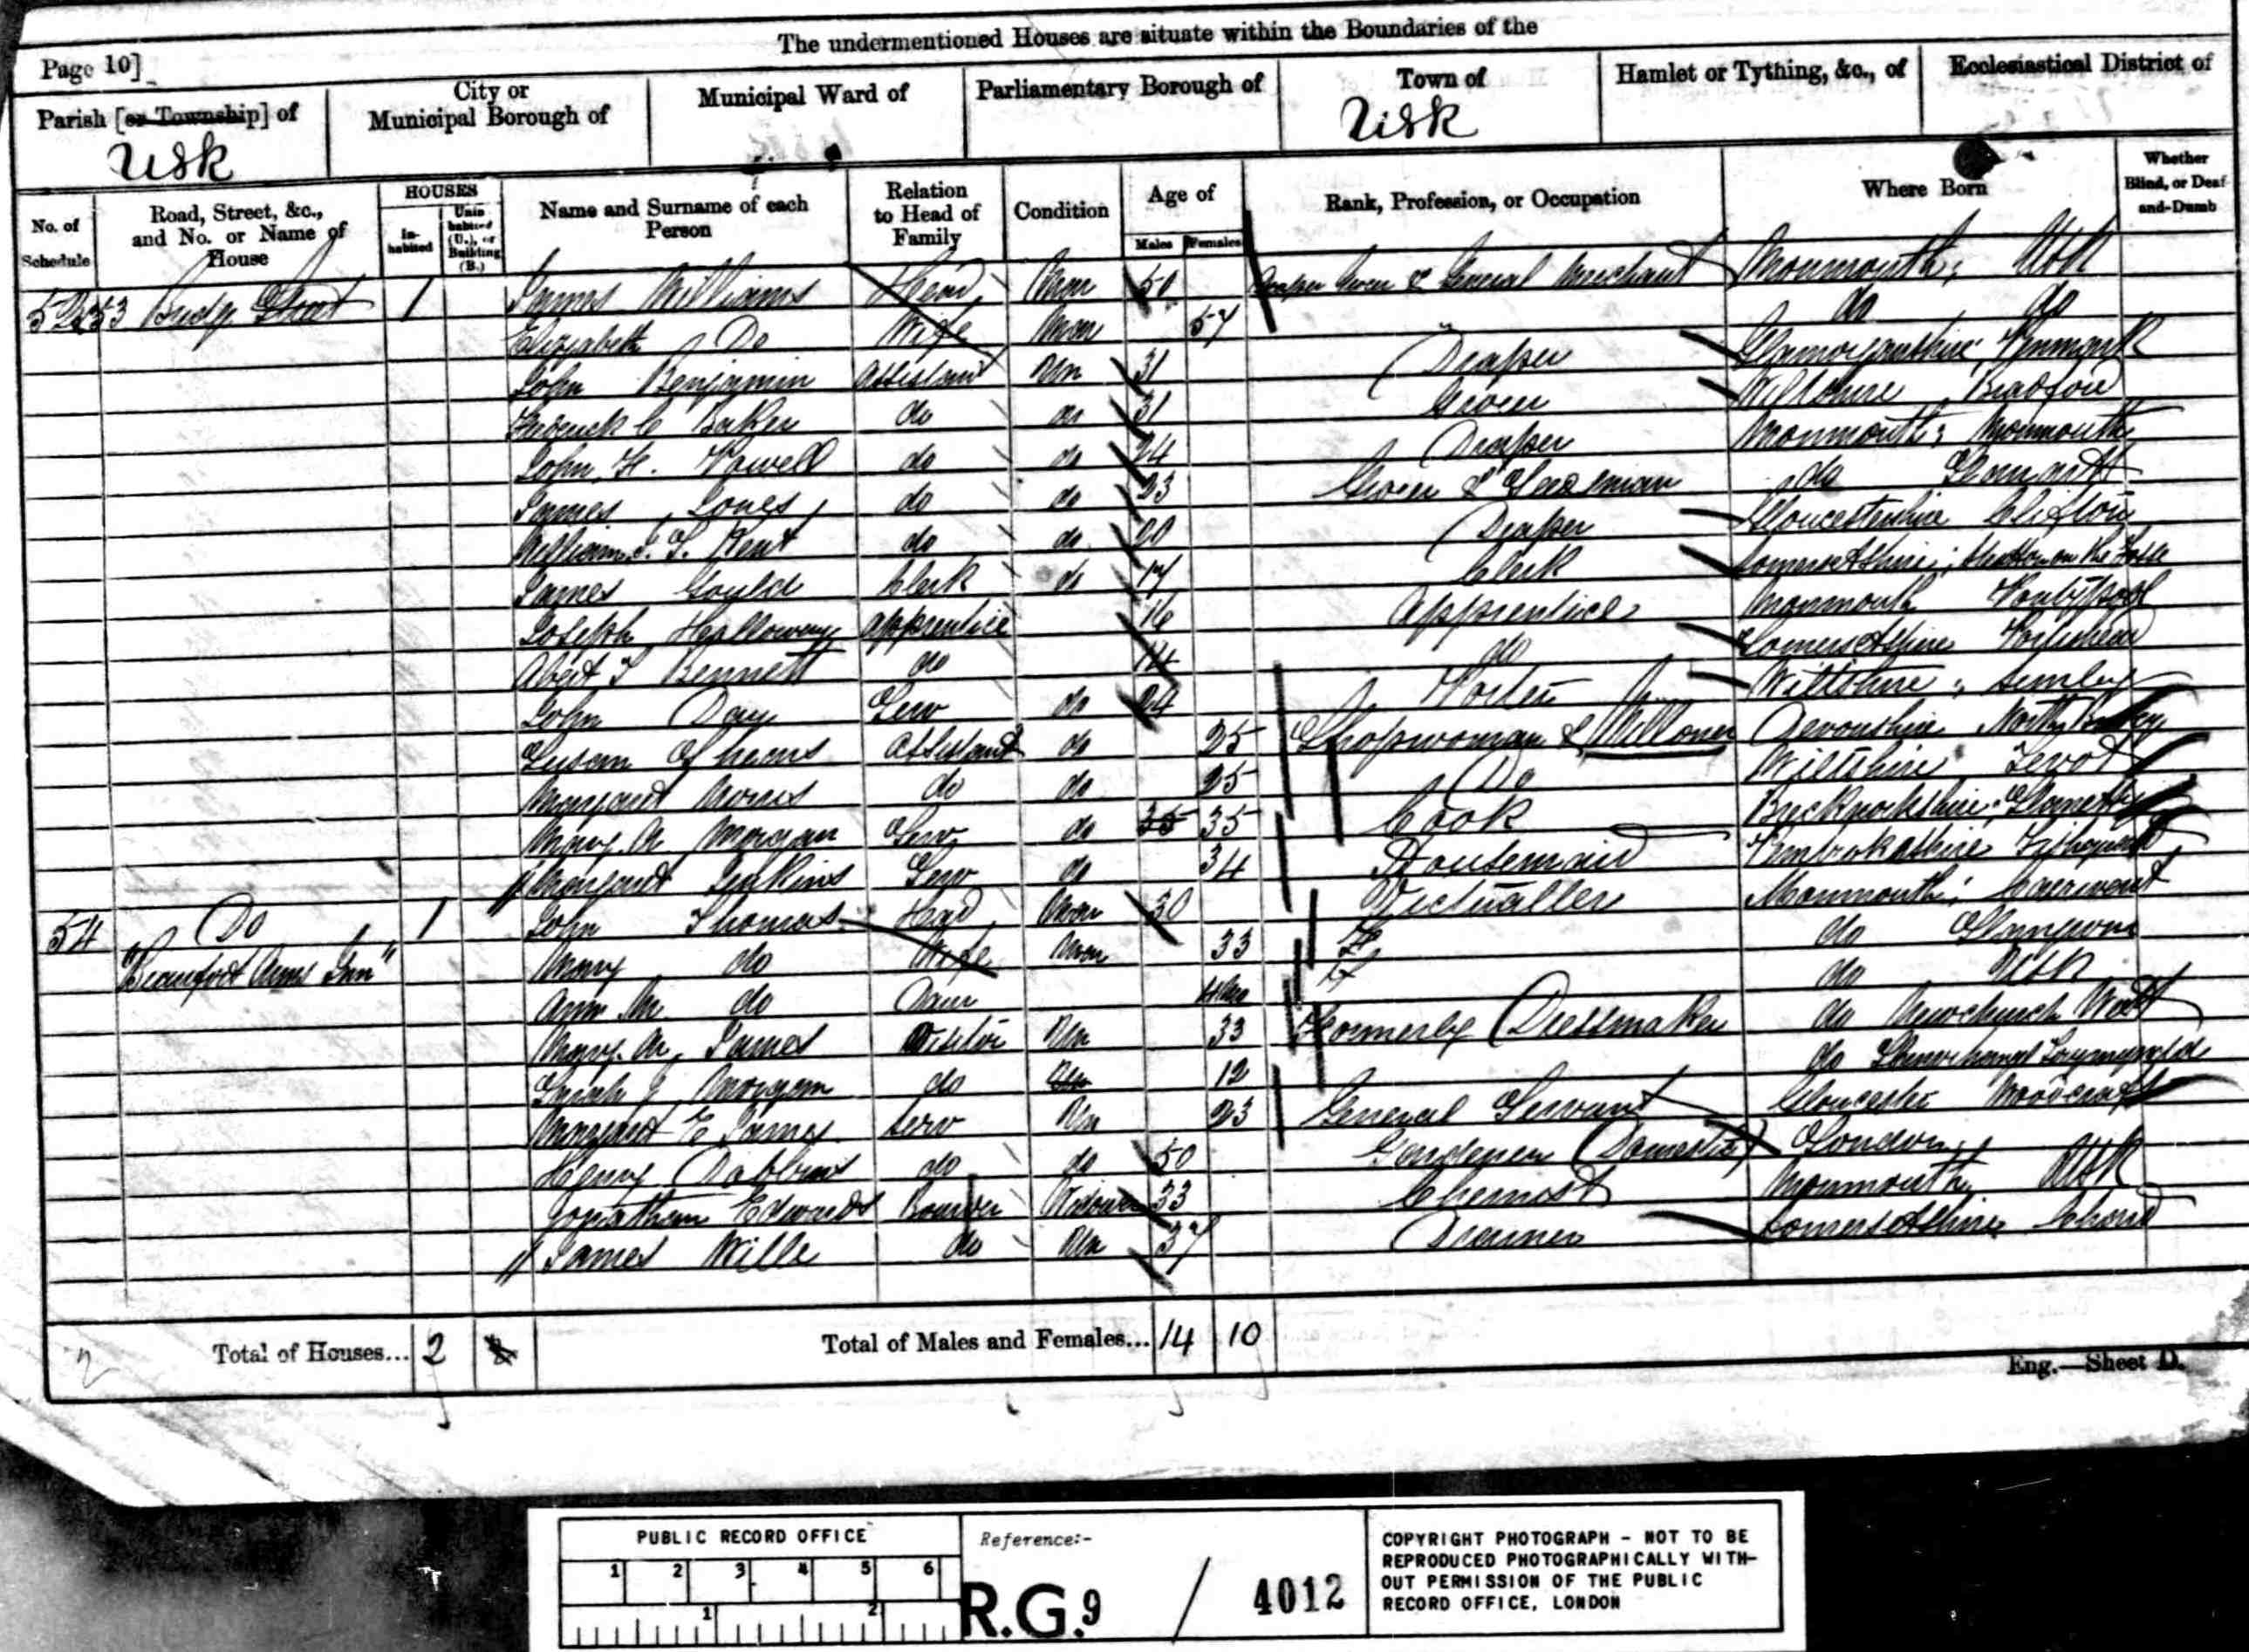 The undermentioned Houses are situate within the Boundaries of the
Page 10]
Parish [or Township] of
City or Municipal Borough of
Municipal Ward of
Parliamentary Borough of
Town of
Hamlet or Tything, &c., of
Ecclesiastical District of
Usk
Usk
No. of Schedule
Road, Street, &c., and No. or Name of House
HOUSES
In-habited
Unin-habited (U.), or Building (B.)
Name and Surname of each Person
Relation to Head of Family
Condition
Age of
Males
Females
Rank, Profession, or Occupation
Where Born
Whether Blind, or Deaf-and-Dumb
53 Bridge Street 1 James Williams Head Mar 50 Draper Grocer & General Merchant Monmouth; Usk
Elizabeth Do Wife Mar 57 do do
John Benjamin Assistant Un 31 Draper Glamorganshire Penmark
Frederick C Baker do do 31 Grocer Wiltshire Bradford
John H. Powell do do 24 Draper Monmouth; Monmouth
James Jones do do 23 Grocer & do
William Kent do do 20 Draper Gloucestershire Clifton
James Gould Clerk do 17 Clerk Somersetshire; Stratton on the Fosse
Joseph Holloway apprentice 16 apprentice Monmouth Pontypool
Albert J Bennett do 14 do Somersetshire Portishead
John Day Serv do 24 Porter Wiltshire; Semley
Susan Assistant do 25 Shopwoman & Milliner Devonshire North
Margaret Morris do do 25 Do Wiltshire
Mary A Morgan Serv do 35 35 Cook Brecknockshire;
Margaret Jenkins Serv do 34 Housemaid Pembrokeshire Fishguard
54 Do 1 John Thomas Head Mar 30 Victualler Monmouth; Caerwent
"Beaufort Arms Inn" Mary do Wife Mar 33 do
Ann M do Daur do Usk
Mary A James Visitor Un 33 Formerly Dressmaker do Newchurch West
Morgan do 12 do
Margaret E James Serv Un 23 General Servant Gloucester
Henry Dobbins do do 50 Gardener (Domestic) London
Jonathan Edwards Boarder Widower 33 Chemist Monmouth Usk
James Wille do Un 37 Somersetshire Chard
Total of Houses... 2
Total of Males and Females... 14 10
Eng.—Sheet D.
PUBLIC RECORD OFFICE
1 2 3 4 5 6
1 2
Reference:-
R.G.9 / 4012
COPYRIGHT PHOTOGRAPH - NOT TO BE
REPRODUCED PHOTOGRAPHICALLY WITH-
OUT PERMISSION OF THE PUBLIC
RECORD OFFICE, LONDON